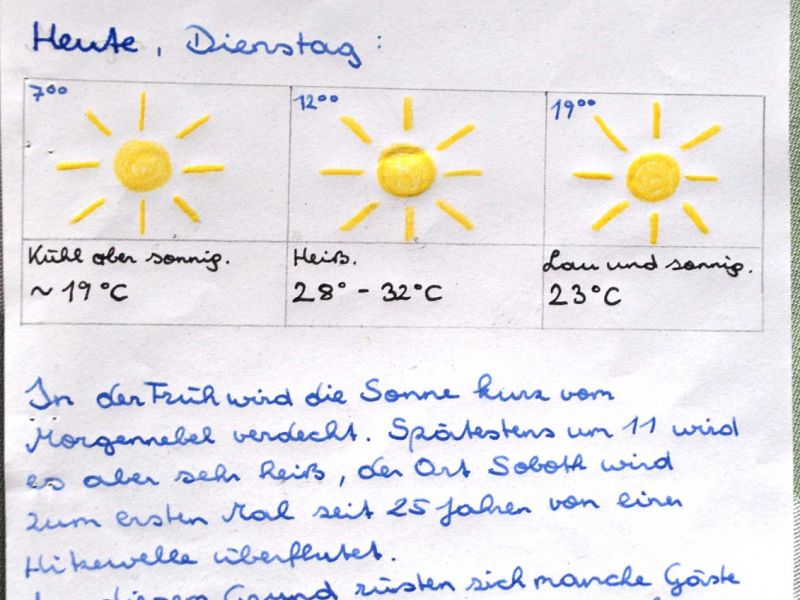 Heute, Dienstag:
7⁰⁰
12⁰⁰
19⁰⁰
Kühl aber sonnig.
~ 19°C
Heiß.
28° - 32°C
Lau und sonnig.
23°C
In der Früh wird die Sonne kurz vom
Morgennebel verdeckt. Spätestens um 11 wird
es aber sehr heiß, der Ort Soboth wird
zum ersten Mal seit 25 Jahren von einer
Hitzewelle überflutet.
diesem Grund rüsten sich manche Gäste